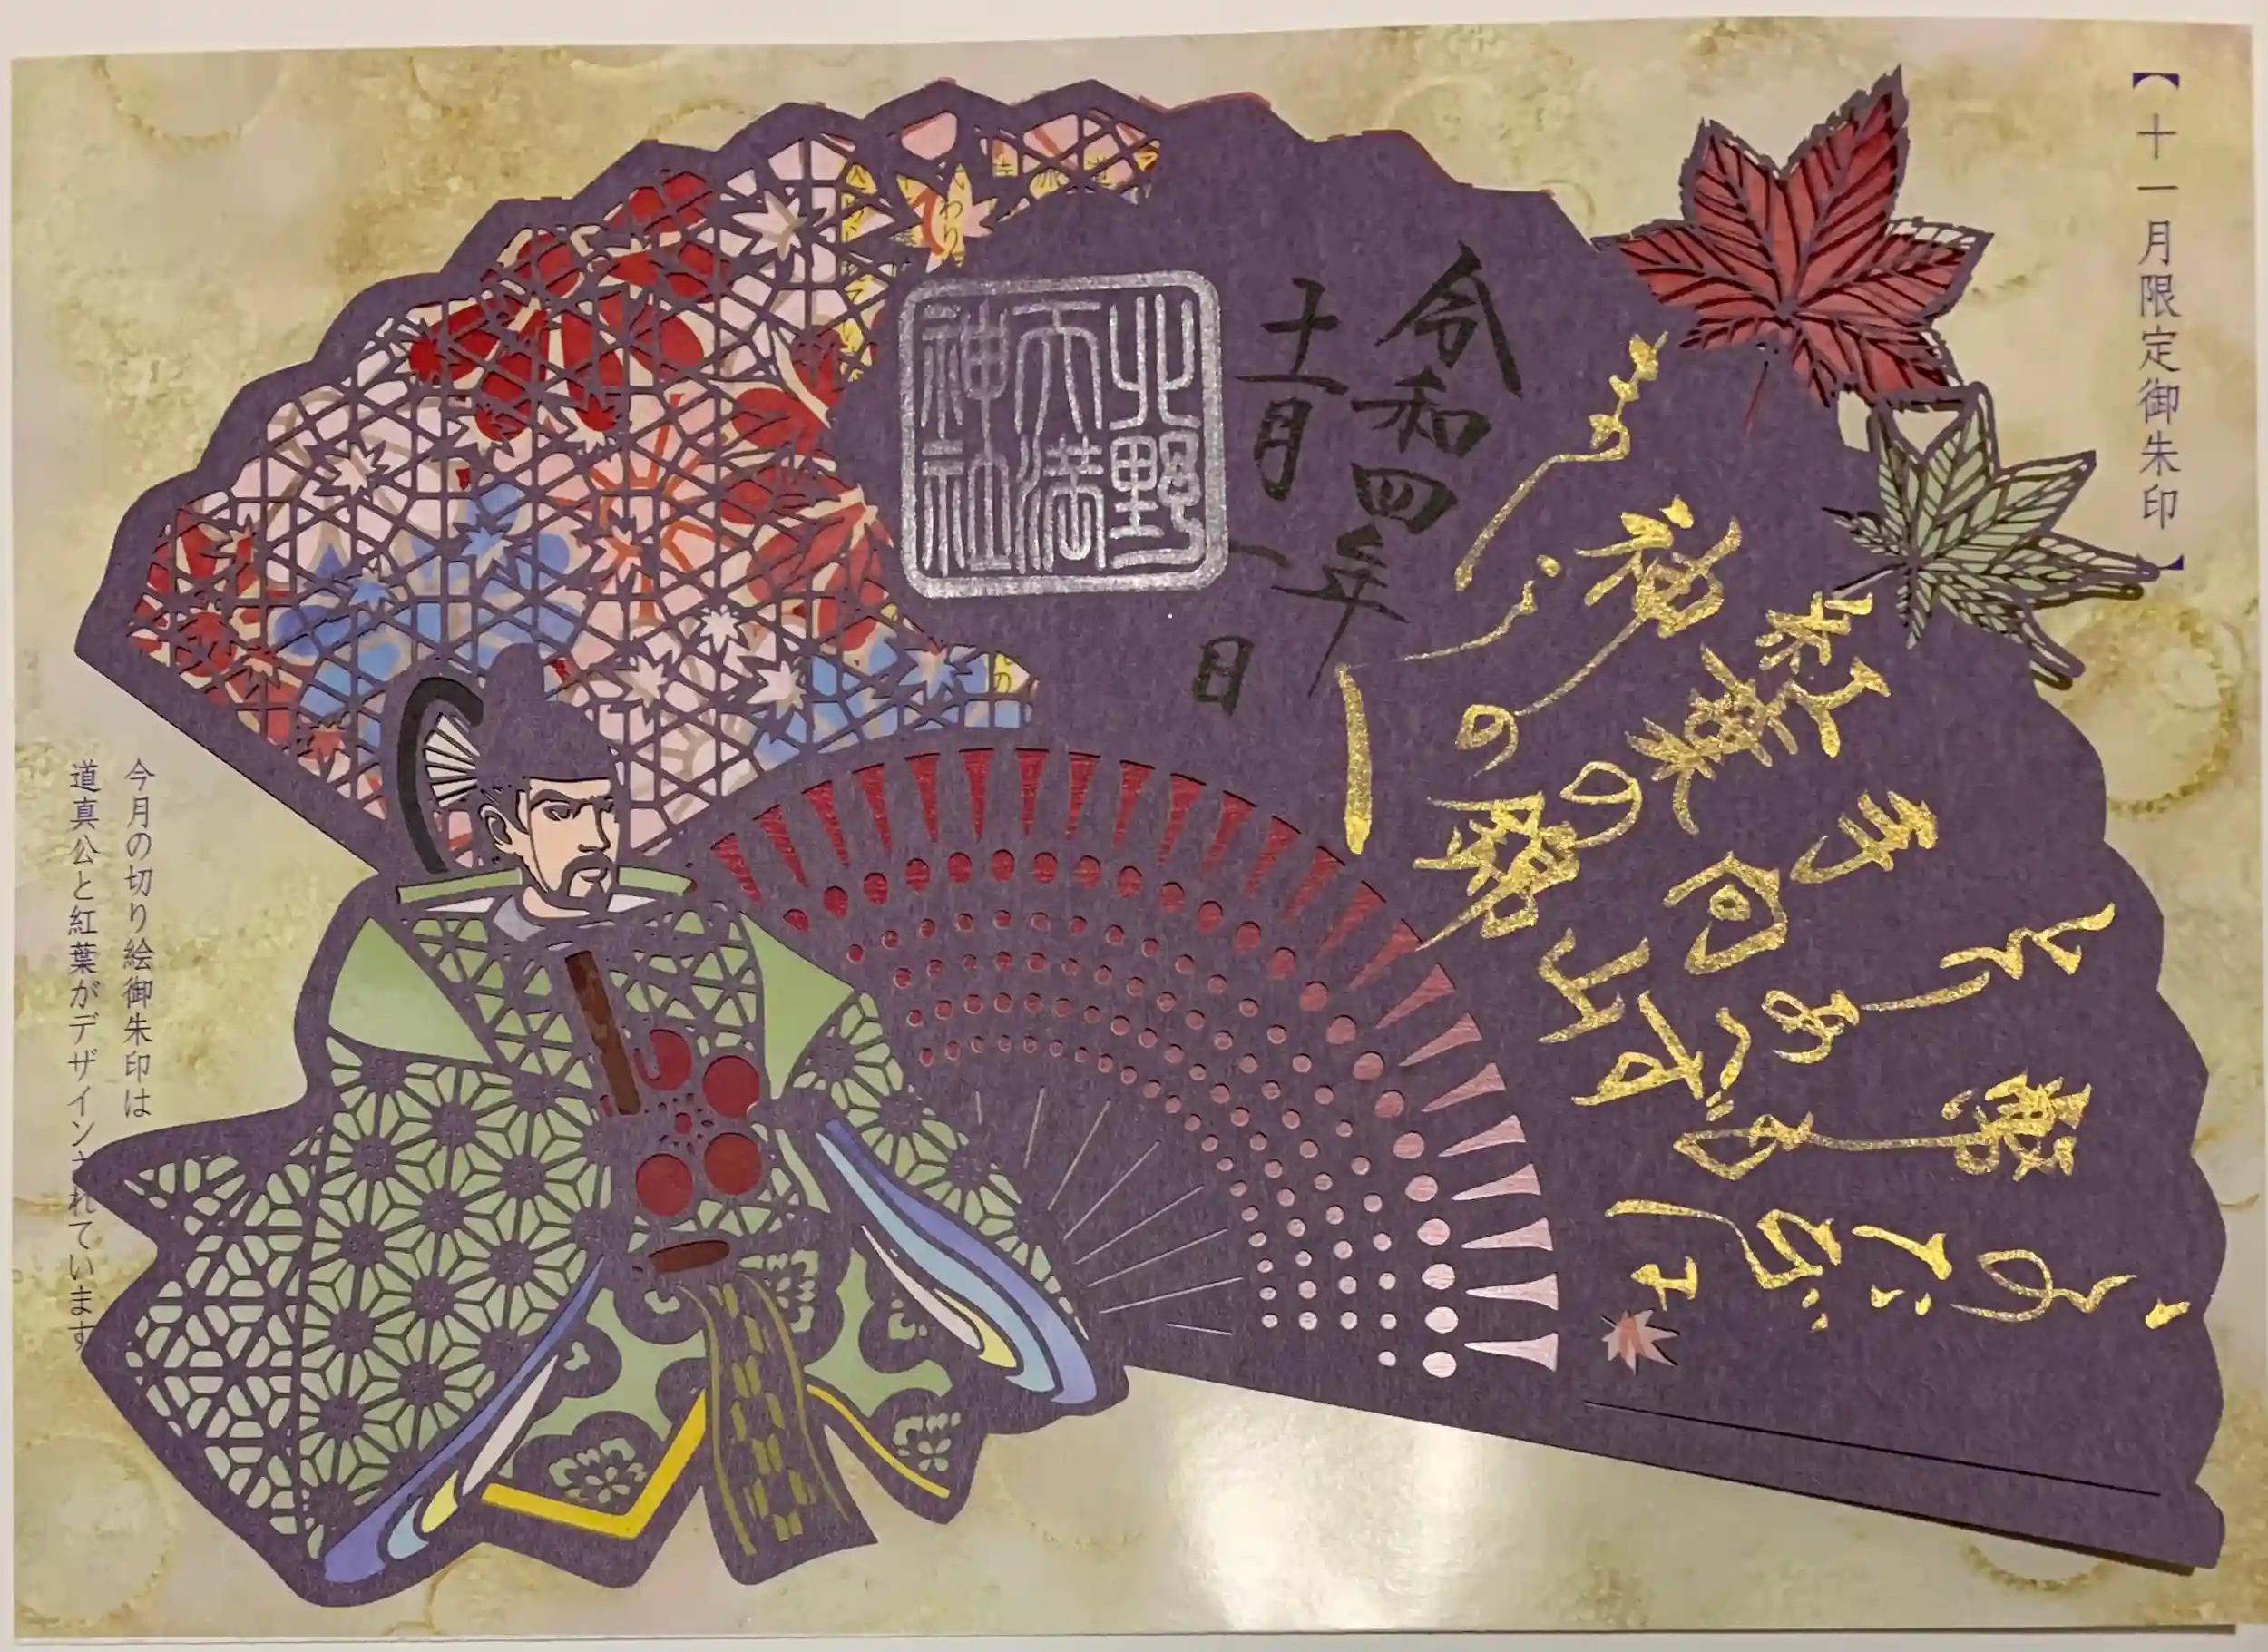 【十一月限定御朱印】
このたびは
幣も
とりあへず
手向山
紅葉の錦
神の
令和四年
十一月一日
北野
天満
神社
今月の切り絵御朱印は
道真公と紅葉がデザインされています